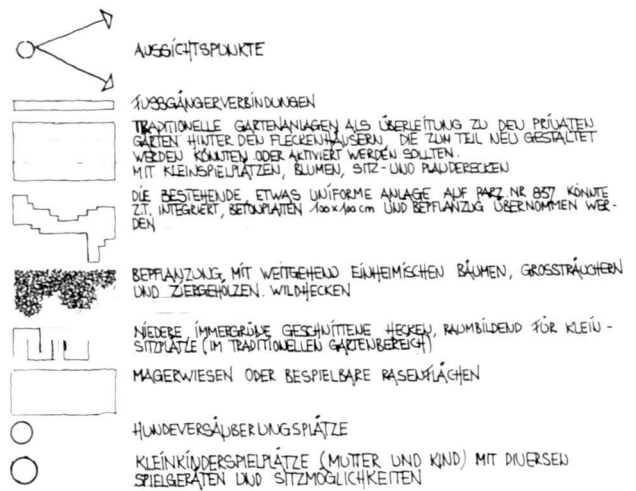 AUSSICHTSPUNKTE
FUSSGÄNGERVERBINDUNGEN
TRADITIONELLE GARTENANLAGEN ALS ÜBERLEITUNG ZU DEN PRIVATEN
GÄRTEN HINTER DEN FLECKENHÄUSERN, DIE ZUM TEIL NEU GESTALTET
WERDEN KÖNNTEN ODER AKTIVIERT WERDEN SOLLTEN.
MIT KLEINSPIELPLÄTZEN, BLUMEN, SITZ- UND PLAUDERECKEN
DIE BESTEHENDE, ETWAS UNIFORME ANLAGE AUF PARZ. NR 857 KÖNNTE
Z.T. INTEGRIERT, BETONPLATTEN 100x100 cm UND BEPFLANZUG ÜBERNOMMEN WER-
DEN
BEPFLANZUNG MIT WEITGEHEND EINHEIMISCHEN BÄUMEN, GROSSTRÄUCHERN
UND ZIERGEHÖLZEN. WILDHECKEN
NIEDERE IMMERGRÜNE GESCHNITTENE HECKEN, RAUMBILDEND FÜR KLEIN-
SITZPLÄTZE (IM TRADITIONELLEN GARTENBEREICH)
MAGERWIESEN ODER BESPIELBARE RASENFLÄCHEN
HUNDEVERSÄUBERUNGSPLÄTZE
KLEINKINDERSPIELPLÄTZE (MUTTER UND KIND) MIT DIVERSEN
SPIELGERÄTEN UND SITZMÖGLICHKEITEN